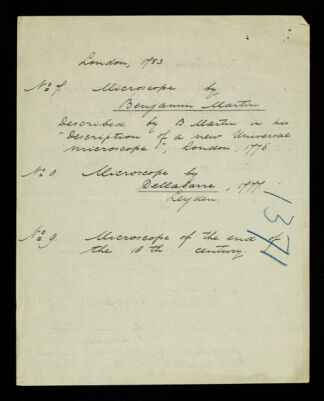 London, 1753
No 7. Microscope by
Benjamin Martin
Described by B Martin in his
"Description of a new Universal
microscope", London, 1776.
No 8. Microscope by
Dellabarre, 1777.
Leyden.
No 9. Microscope of the end of
the 18th century
1371